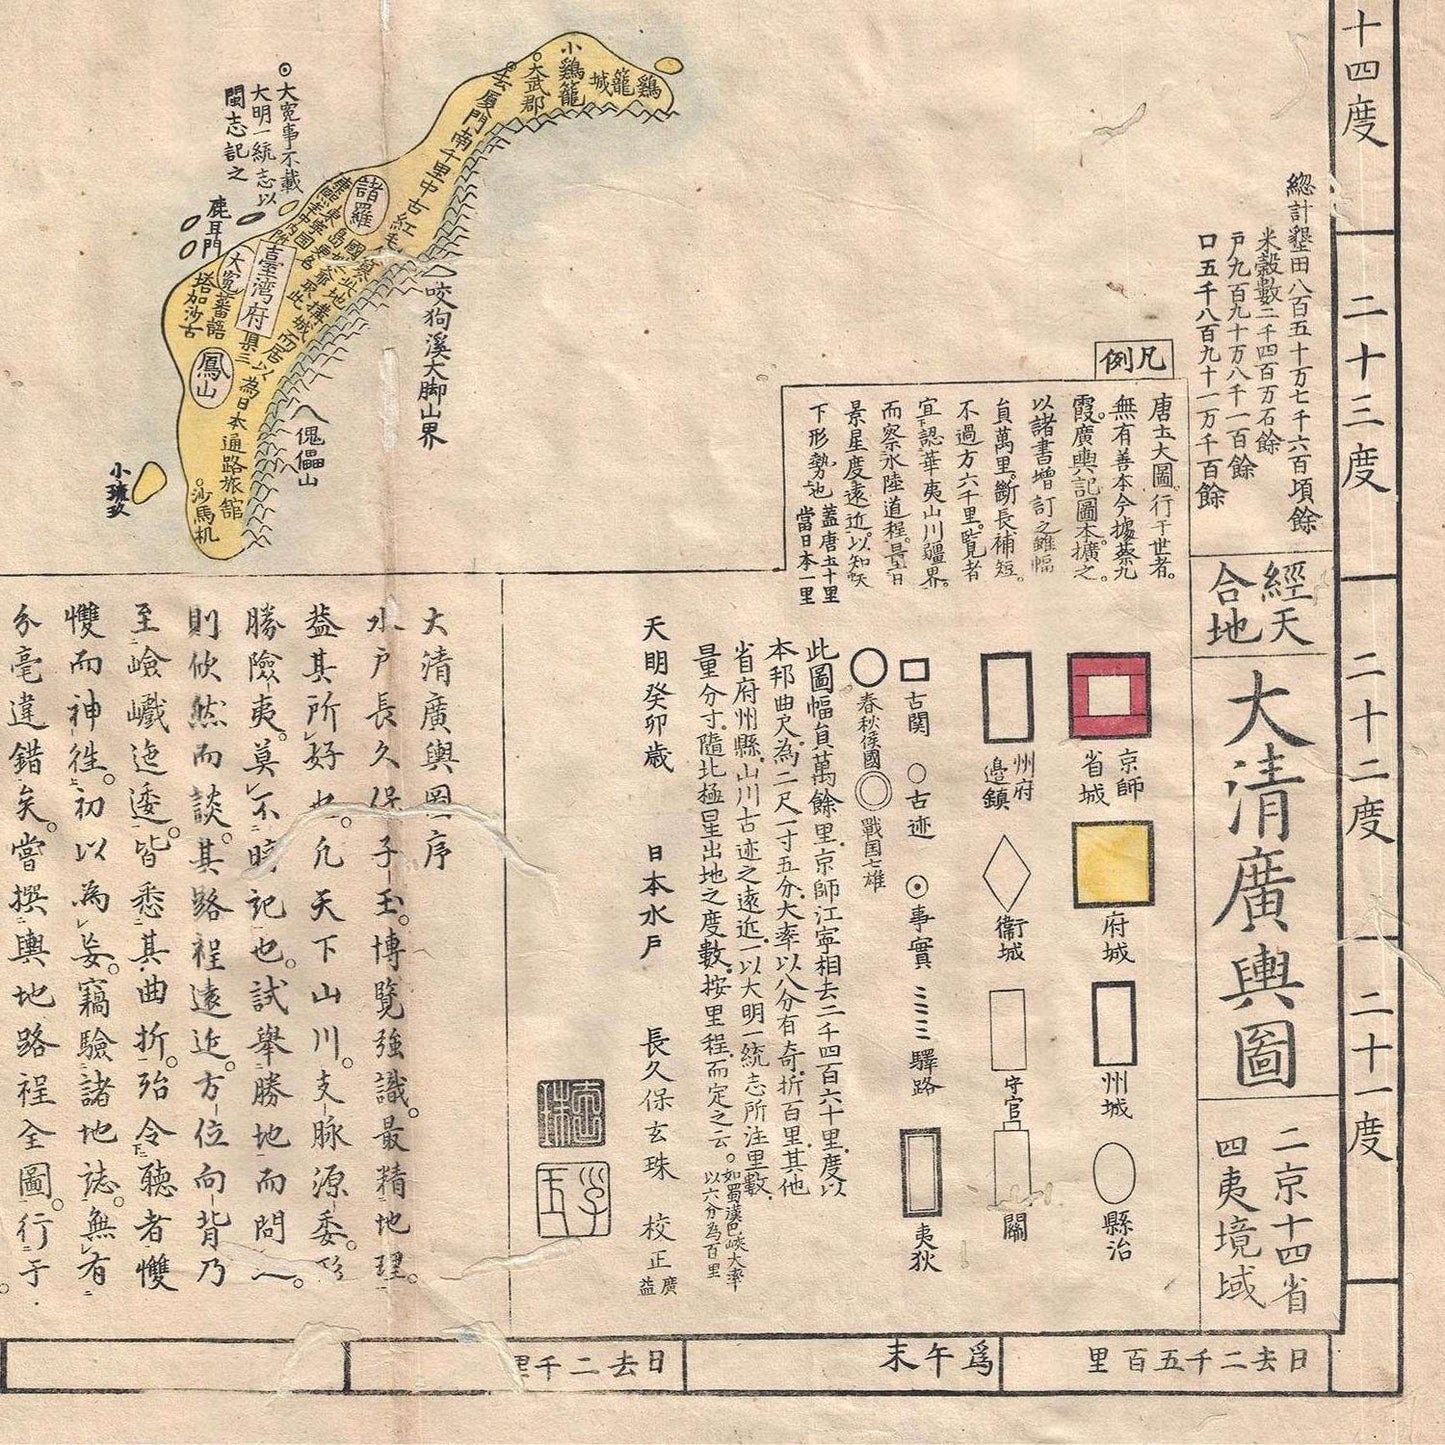 十四度
二十三度
二十二度
二十一度
総計墾田八百五十万七千六百頃餘
米穀數二千四百万石餘
戸九百九十万八千一百餘
口五千八百九十一万千百餘
經天
合地
大清廣輿圖
二京十四省
四夷境域
凡例
唐土大圖行于世者。
無有善本今據蔡九
霞。廣輿記圖本擴之。
以諸書増訂之雖幅
員萬里。斷長補短。
不過方六千里。覧者
宜認華夷山川疆界。
而察水陸道程。
景星度遠近。以知天
下形勢也
蓋唐土十里
當日本一里
京師
省城
府城
州城
縣治
州府
邊鎮
衞城
守官
關
古関
古迹
事實
驛路
夷狄
春秋侯國
戰国七雄
此圖幅員萬餘里。京師江寧相去二千四百六十里。度以
本邦曲尺。為二尺一寸五分。大率以八分有奇。折百里。其他
省府州縣。山川古迹之遠近。一以大明一統志所注里數。
量分寸。隨北極星出地之度數。按里程。而定之云。
如蜀漢巴峽大率
以六分為百里
天明癸卯歳
日本水戸
長久保玄珠
校正
廣益
大清廣輿圖序
水戸長久保子玉。博覽強識。最精地理。
蓋其所好也。凡天下山川。支脉源委。
勝險夷。莫不暗記也。試舉勝地而問
則佽然而談。其路程遠近。方位向背乃
至嶮巇迤逶。皆悉其曲折。殆令聽者慢
慢而神徃。初以為妄。竊驗諸地誌。無有
分毫違錯矣。嘗撰輿地路程全圖。行于
鷄籠城
小鷄籠
大武郡
去厦門南千里中古紅毛
諸羅
臺湾府
縣三
大寃
蕃語
塔加沙古
鳳山
為日本通路旅館
沙馬机
大寃事不載
大明一統志以
閩志記之
鹿耳門
咬狗溪大脚山界
傀儡山
日去二千五百里
日去二千里